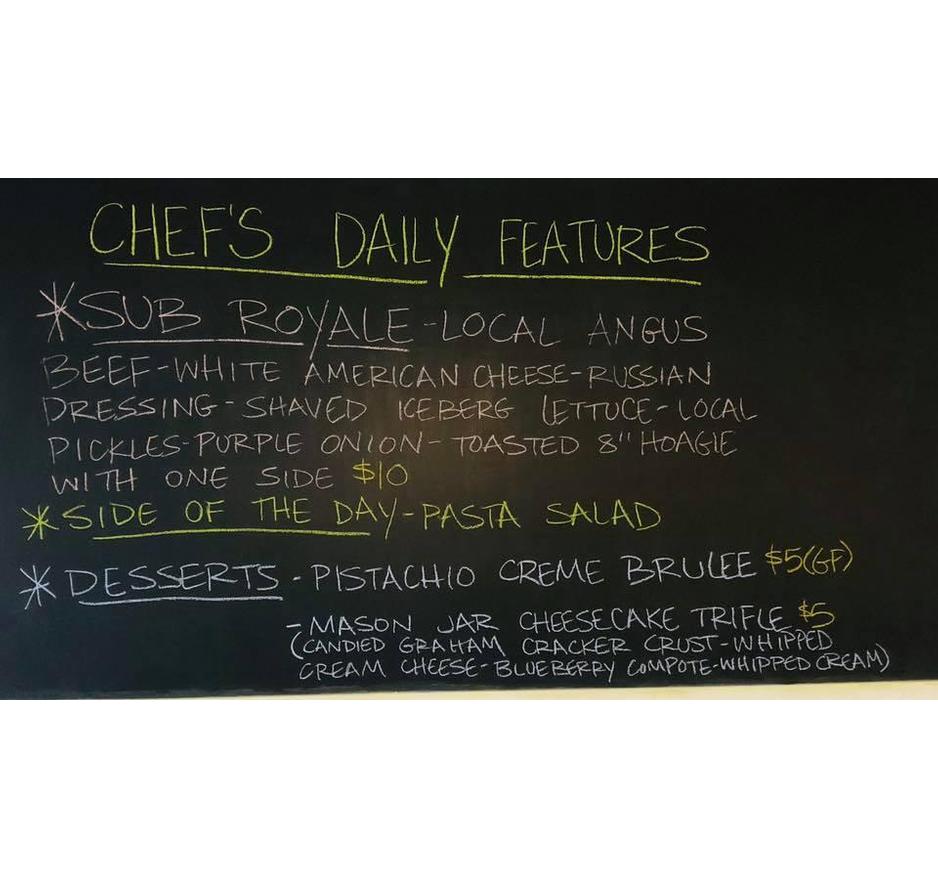 CHEF'S DAILY FEATURES
*SUB ROYALE-LOCAL ANGUS
BEEF-WHITE AMERICAN CHEESE-RUSSIAN
DRESSING-SHAVED ICEBERG LETTUCE-LOCAL
PICKLES-PURPLE ONION-TOASTED 8" HOAGIE
WITH ONE SIDE $10
*SIDE OF THE DAY-PASTA SALAD
*DESSERTS-PISTACHIO CREME BRULEE $5(GF)
-MASON JAR CHEESECAKE TRIFLE $5
(CANDIED GRAHAM CRACKER CRUST-WHIPPED
CREAM CHEESE-BLUEBERRY COMPOTE-WHIPPED CREAM)